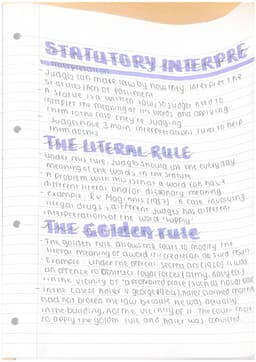 STATUTORY INTERPRE
- Interpretation
- Judges can make law by how they interpret the
Statutes/Acts of Parliment.
- A Statue is a written law, so judges need to
interpret the meaning of its words and applying
them to the case they're judging.
- Judges have 3 main interpretation rules to help
them do this
THE LITERAL RULE
- Under this rule, Judges should use the everyday
meaning of the words in the statute.
- A problem with this is that a word can have
different literal and/or dictionary meaning.
- Example: R v Maginnis (1987) - A case involving
illegal drugs, different judges has different
interpretations of the word 'supply'.
THE Golden rule
- The golden rule allows the court to modify the
literal meaning of a word if it creates an absurd result
- Example: Under the official secrets act 1920, it was
an offence to obstruct royal forces (army, navy etc)
in the vicinity of 'a prohibited place' (such as naval base
- In the case of Adler v George (1964), Adler claimed he
had not broken the law because he was actually
in the building, not the vicinity of it. The court chose
to apply the golden rule and Adler was convicted.